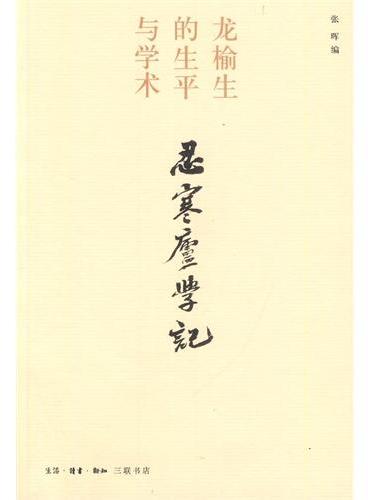 龙榆生
的生平
与学术
张晖编
忍寒廬學記
生活·讀書·新知 三联书店